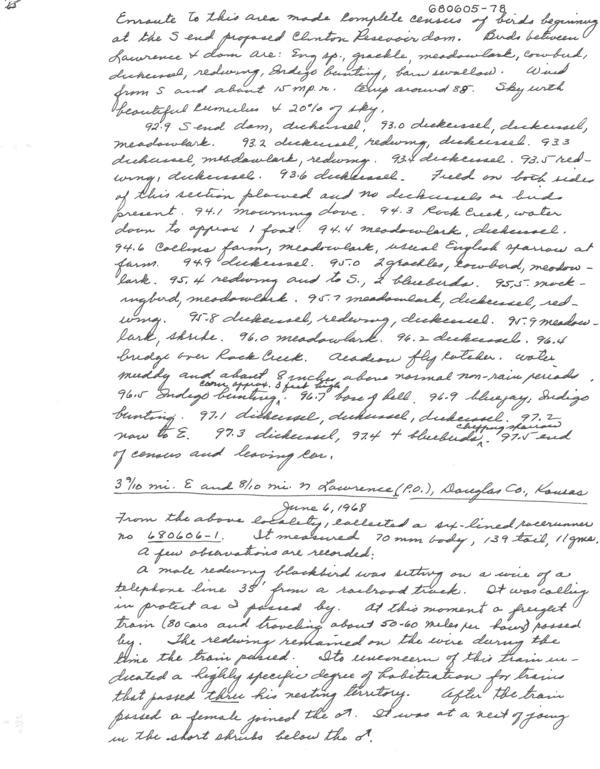 680605-78
Enroute to this area made complete census of birds beginning
at the S end proposed Clinton Resevoir dam. Birds between
Lawrence & dam are: Eng sp., grackle, meadowlark, cowbird,
dickcissel, redwing, Indigo bunting, barn swallow. Wind
from S and about 15 m.p.h. Temp around 88. Sky with
beautiful cumulus & 20% of sky.
92.9 S end dam, dickcissel, 93.0 dickcissel, dickcissel,
meadowlark. 93.2 dickcissel, redwing, dickcissel. 93.3
dickcissel, meadowlark, redwing. 93.4 dickcissel. 93.5 red-
wing, dickcissel. 93.6 dickcissel. Field on both sides
of this section plowed and no dickcissels or birds
present. 94.1 mourning dove. 94.3 Rock Creek, water
down to approx 1 foot. 94.4 meadowlark, dickcissel.
94.6 Collins farm, meadowlark, usual English sparrow at
farm. 94.9 dickcissel. 95.0 2 grackles, cowbird, meadow-
lark. 95.4 redwing and to S., 2 bluebirds. 95.5 mock-
ingbird, meadowlark. 95.7 meadowlark, dickcissel, red-
wing. 95.8 dickcissel, redwing, dickcissel. 95.9 meadow-
lark, shrike. 96.0 meadowlark. 96.2 dickcissel. 96.4
bridge over Rock Creek. Acadian fly catcher. water
muddy and about 8 inches above normal non-rain periods.
corn approx. 3 feet high
96.5 Indigo bunting. 96.7 base of hill. 96.9 bluejay, Indigo
bunting. 97.1 dickcissel, dickcissel, dickcissel. 97.2
chipping sparrow
now to E. 97.3 dickcissel, 97.4 4 bluebirds. 97.5 end
of census and leaving car.
3 9/10 mi. E and 8/10 mi. N Lawrence (P.O.), Douglas Co., Kansas
June 6, 1968
From the above locality, collected a six-lined racerunner
no 680606-1. It measured 70 mm body, 139 tail, 11 gms.
A few observations are recorded:
A male redwing blackbird was sitting on a wire of a
telephone line 35' from a railroad track. It was calling
in protest as I passed by. At this moment a freight
train (80 cars and traveling about 50-60 miles per hour) passed
by. The redwing remained on the wire during the
time the train passed. Its unconcern of this train in-
dicated a highly specific degree of habituation for trains
that passed thru his nesting territory. After the train
passed a female joined the ♂. It was at a nest of young
in the short shrubs below the ♂.